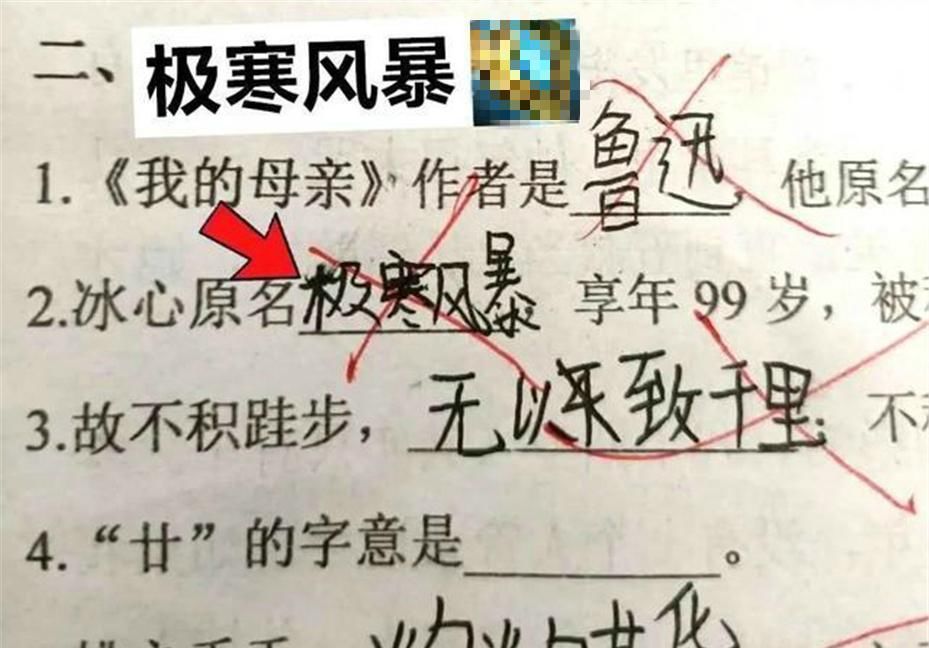 二、极寒风暴
1.《我的母亲》作者是鲁迅，他原名
2.冰心原名极寒风暴 享年 99 岁，被
3.故不积跬步，无以来致千里；不
4.“廿”的字意是 。